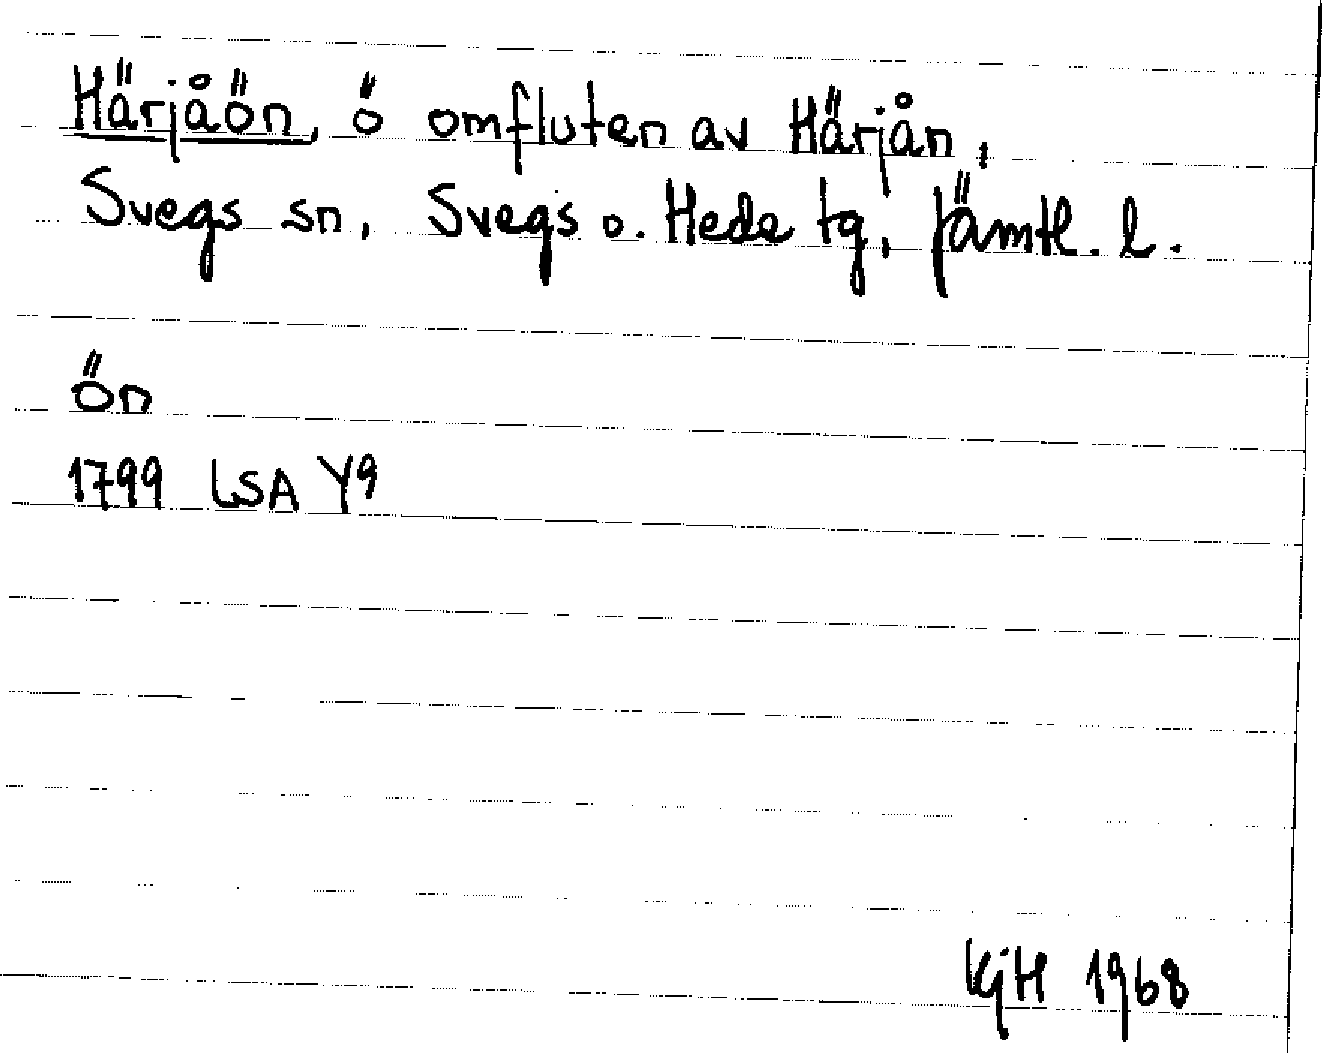 Härjåön, ö omfluten av Härjån,
Svegs sn, Svegs o. Hede tg, Jämtl. l.
ön
1799 LSA Y9
KjH 1968